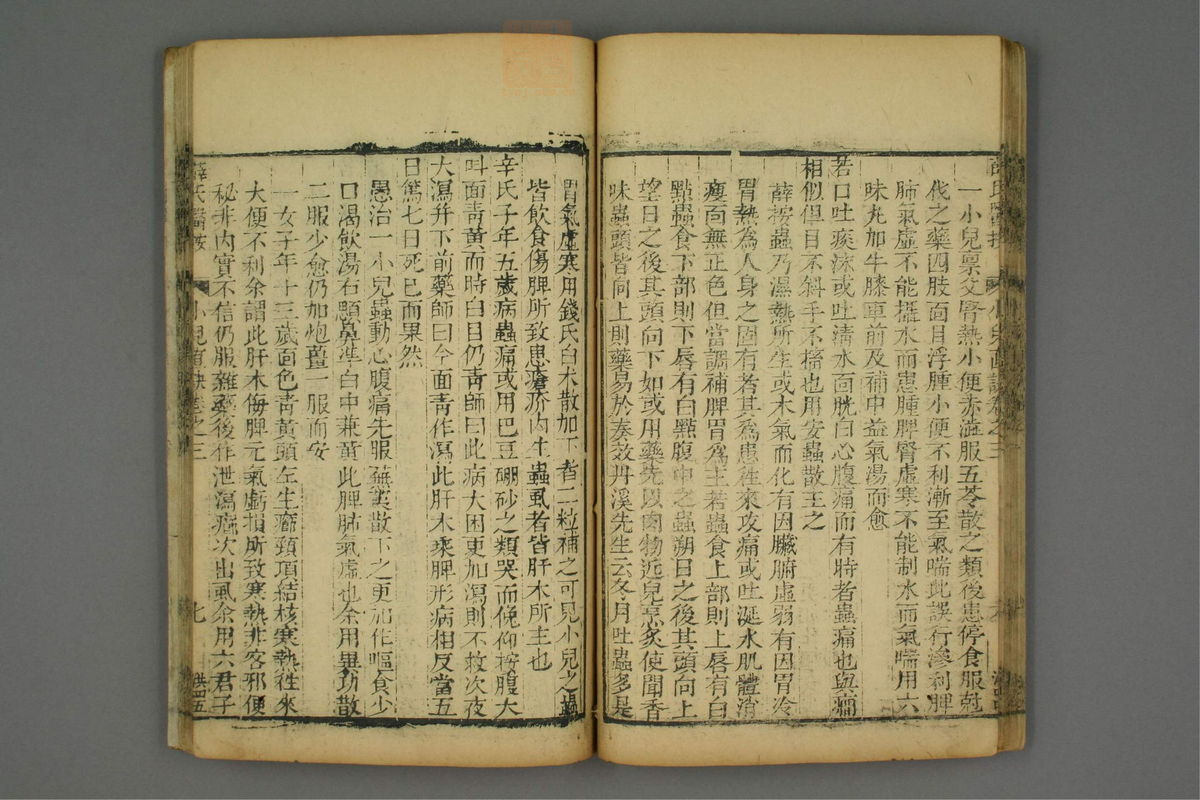 一小兒禀父腎熱小便赤澁服五苓散之類後患停食服尅
伐之藥四肢面目浮腫小便不利漸至氣喘此誤行滲利脾
肺氣虛不能攝水而患腫脾腎虛寒不能制水而氣喘用六
味丸加牛膝車前及補中益氣湯而愈
若口吐痰沫或吐淸水面㿠白心腹痛而有時者蟲痛也與癎
相似但目不斜手不搐也用安蟲散主之
薛按蟲乃濕熱所生或木氣而化有因臟腑虛弱有因胃冷
胃熱為人身之固有者其為患徃來攻痛或吐涎水肌體消
瘦面無正色但當調補脾胃爲主若蟲食上部則上唇有白
點蟲食下部則下唇有白點腹中之蟲朔日之後其頭向上
望日之後其頭向下如或用藥先以肉物近兒烹炙使聞香
味蟲頭皆向上則藥易於奏效丹溪先生云冬月吐蟲多是
胃氣虛寒用錢氏白术散加丁香二粒補之可見小兒之蟲
皆飲食傷脾所致患瘡疥内生蟲虱者皆肝木所主也
辛氏子年五歲病蟲痛或用巴豆硼砂之類哭而俛仰按腹大
呌面青黃而時白目仍靑師曰此病大困更加瀉則不救次夜
大瀉并下前藥師曰今面青作瀉此肝木乘脾形病相反當五
日篤七日死已而果然
愚治一小兒蟲動心腹痛先服蕪荑散下之更加作嘔食少
口渴飲湯右顋鼻準白中兼黃此脾肺氣虛也余用異功散
二服少愈仍加炮薑一服而安
一女子年十三歲面色靑黃頭左生瘡頸項結核寒熱徃來
大便不利余謂此肝木侮脾元氣虧損所致寒熱非客邪便
秘非内實不信仍服雜藥後作泄瀉瘡次出虱余用六君子
薛氏醫按 小兒直訣卷之三 七